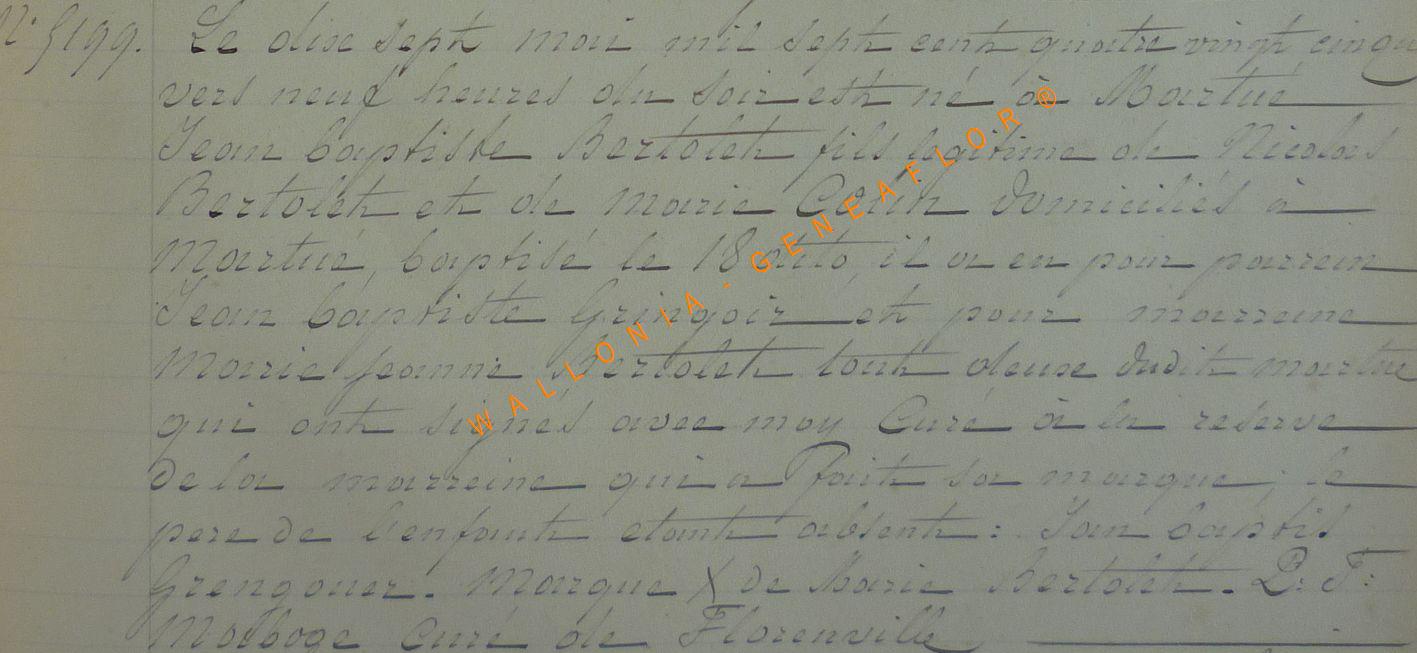 N° 5199. Le dix sept mai mil sept cent quatre vingt cinq
vers neuf heures du soir est né à Martué
Jean baptiste Bertolet fils legitime de Nicolas
Bertolet et de Marie Colin domiciliés à
Martué, baptisé le 18 dito, il a eu pour parrein
Jean baptiste Gringoir et pour marreine
Marie jeanne Bertolet tout deux dudit martué
qui ont signés avec moy Curé à la reserve
de la marreine qui a fait sa marque ; le
pere de l'enfant etant absent : Jan baptis
Grengouer. Marque X de Marie Bertolet. P. F:
curé de Florenville
WALLONIA - GENEAFLOR ®